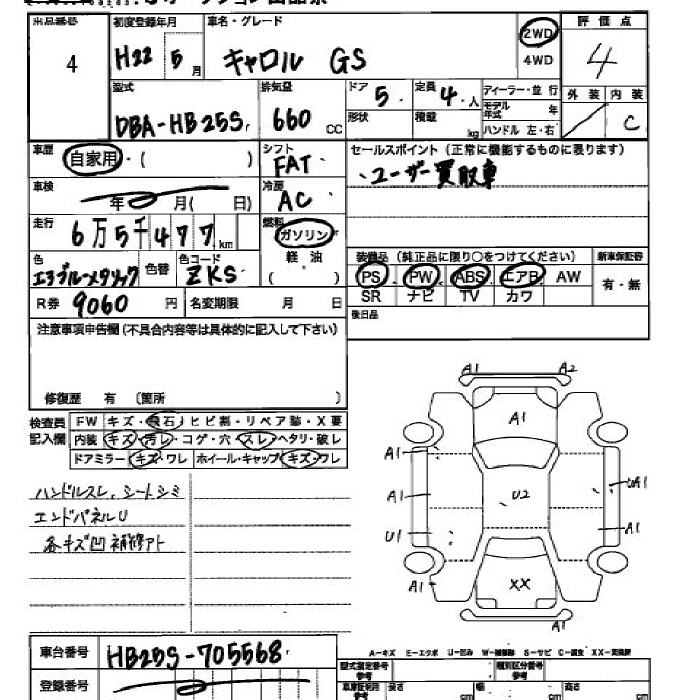 出品番号 初度登録年月 車名・グレード 2WD 4WD 評価点
4 H22 5月 キャロル GS 4
型式 排気量 ドア 定員 ディーラー・並行 外装 内装
DBA-HB25S 660 CC 5 4人 モデル年式 年
形状 積載 kg ハンドル 左・右 C
車歴 自家用・( ) シフト FAT セールスポイント(正常に機能するものに限ります)
ユーザー買取車
車検 年 月( 日) 冷房 AC
走行 6万5千477km 燃料 ガソリン 軽油 ( )
装備品(純正品に限り○をつけてください) 新車保証書
色 色替 色コード ZKS
PS PW ABS エアB AW 有・無
SR ナビ TV カワ
R券 9060円 名変期限 月 日
後日品
注意事項申告欄(不具合内容等は具体的に記入して下さい)
修復歴 有 (箇所 )
検査員記入欄 FW キズ・飛石・ヒビ割・リペア跡・X要
内装 キズ・汚レ・コゲ・穴・スレ・ヘタリ・破レ
ドアミラー キズ・ワレ ホイール・キャップ キズ・ワレ
ハンドルスレ、シートシミ
エンドパネルU
各キズ凹補修アト
A1 A2
A1
A1
A1 U2 UA1
U1 A1
A1 XX
A1
A-キズ E-エクボ U-凹ミ W-補修跡 S-サビ C-腐食 XX-交換済
車台番号 HB25S-705568
型式指定番号 参考 類別区分番号 参考
登録番号
車庫証明用 参考 長さ cm 幅 cm 高さ cm